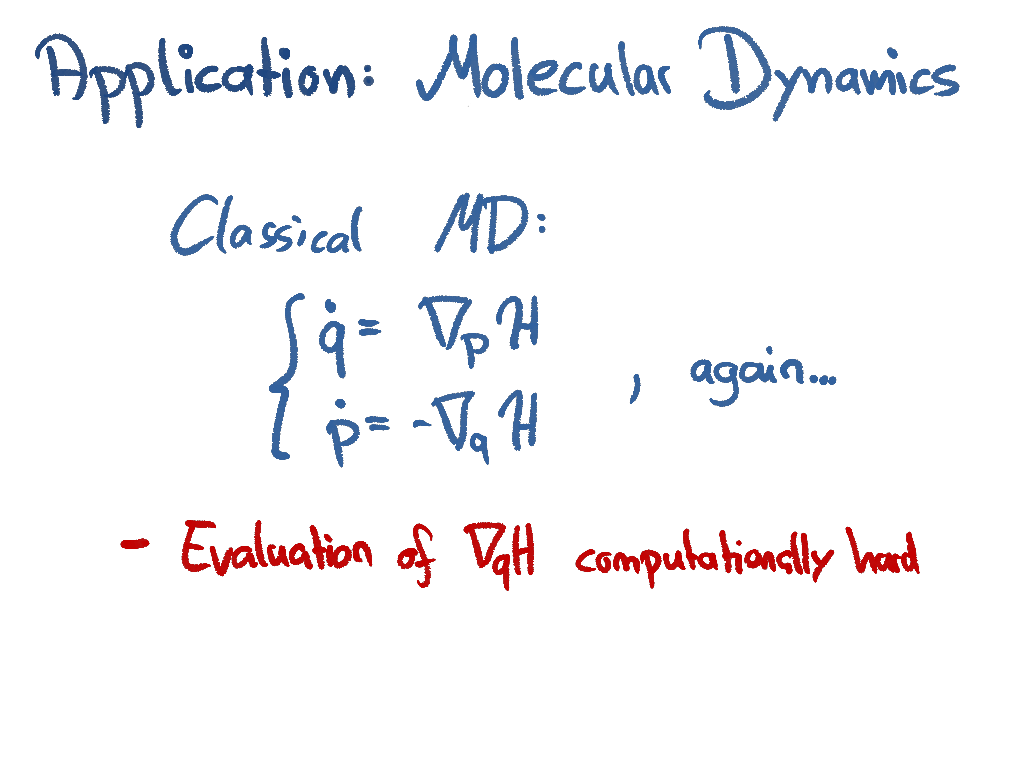 Application: Molecular Dynamics
Classical MD:
{ q̇ = ∇ₚH
ṗ = -∇qH , again...
- Evaluation of ∇qH computationally hard